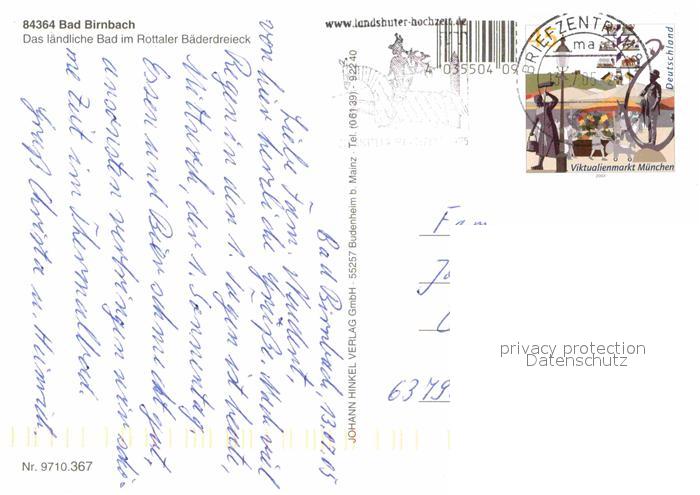 84364 Bad Birnbach
Das ländliche Bad im Rottaler Bäderdreieck
Bad Birnbach, 13.07.05
Liebe Fam.
von hier herzliche Grüße. Nach viel
Regen in den 1. Tagen ist heute,
Mittwoch, der 1. Sonnentag.
Essen und Bier schmeckt gut,
ansonsten verbringen wir
me Zeit im Thermalbad.
Gruß Christa u. Heinrich
Nr. 9710.367
JOHANN HINKEL VERLAG GmbH · 55257 Budenheim b. Mainz · Tel. (06139) - 92240
www.landshuter-hochzeit.de
4 035504 09
BRIEFZENTRUM
ma
Deutschland
Viktualienmarkt München
2003
6379
privacy protection
Datenschutz